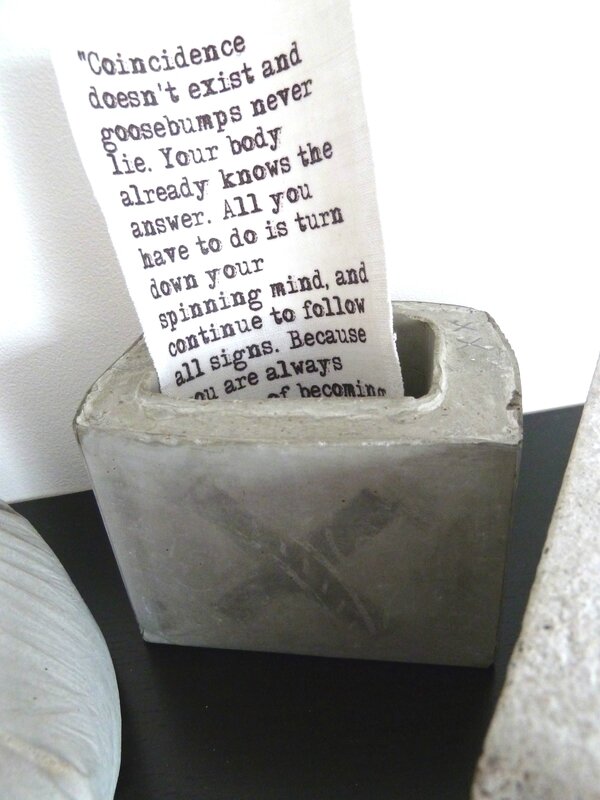 "Coincidence
doesn't exist and
goosebumps never
lie. Your body
already knows the
answer. All you
have to do is turn
down your
spinning mind, and
continue to follow
all signs. Because
you are always
of becoming